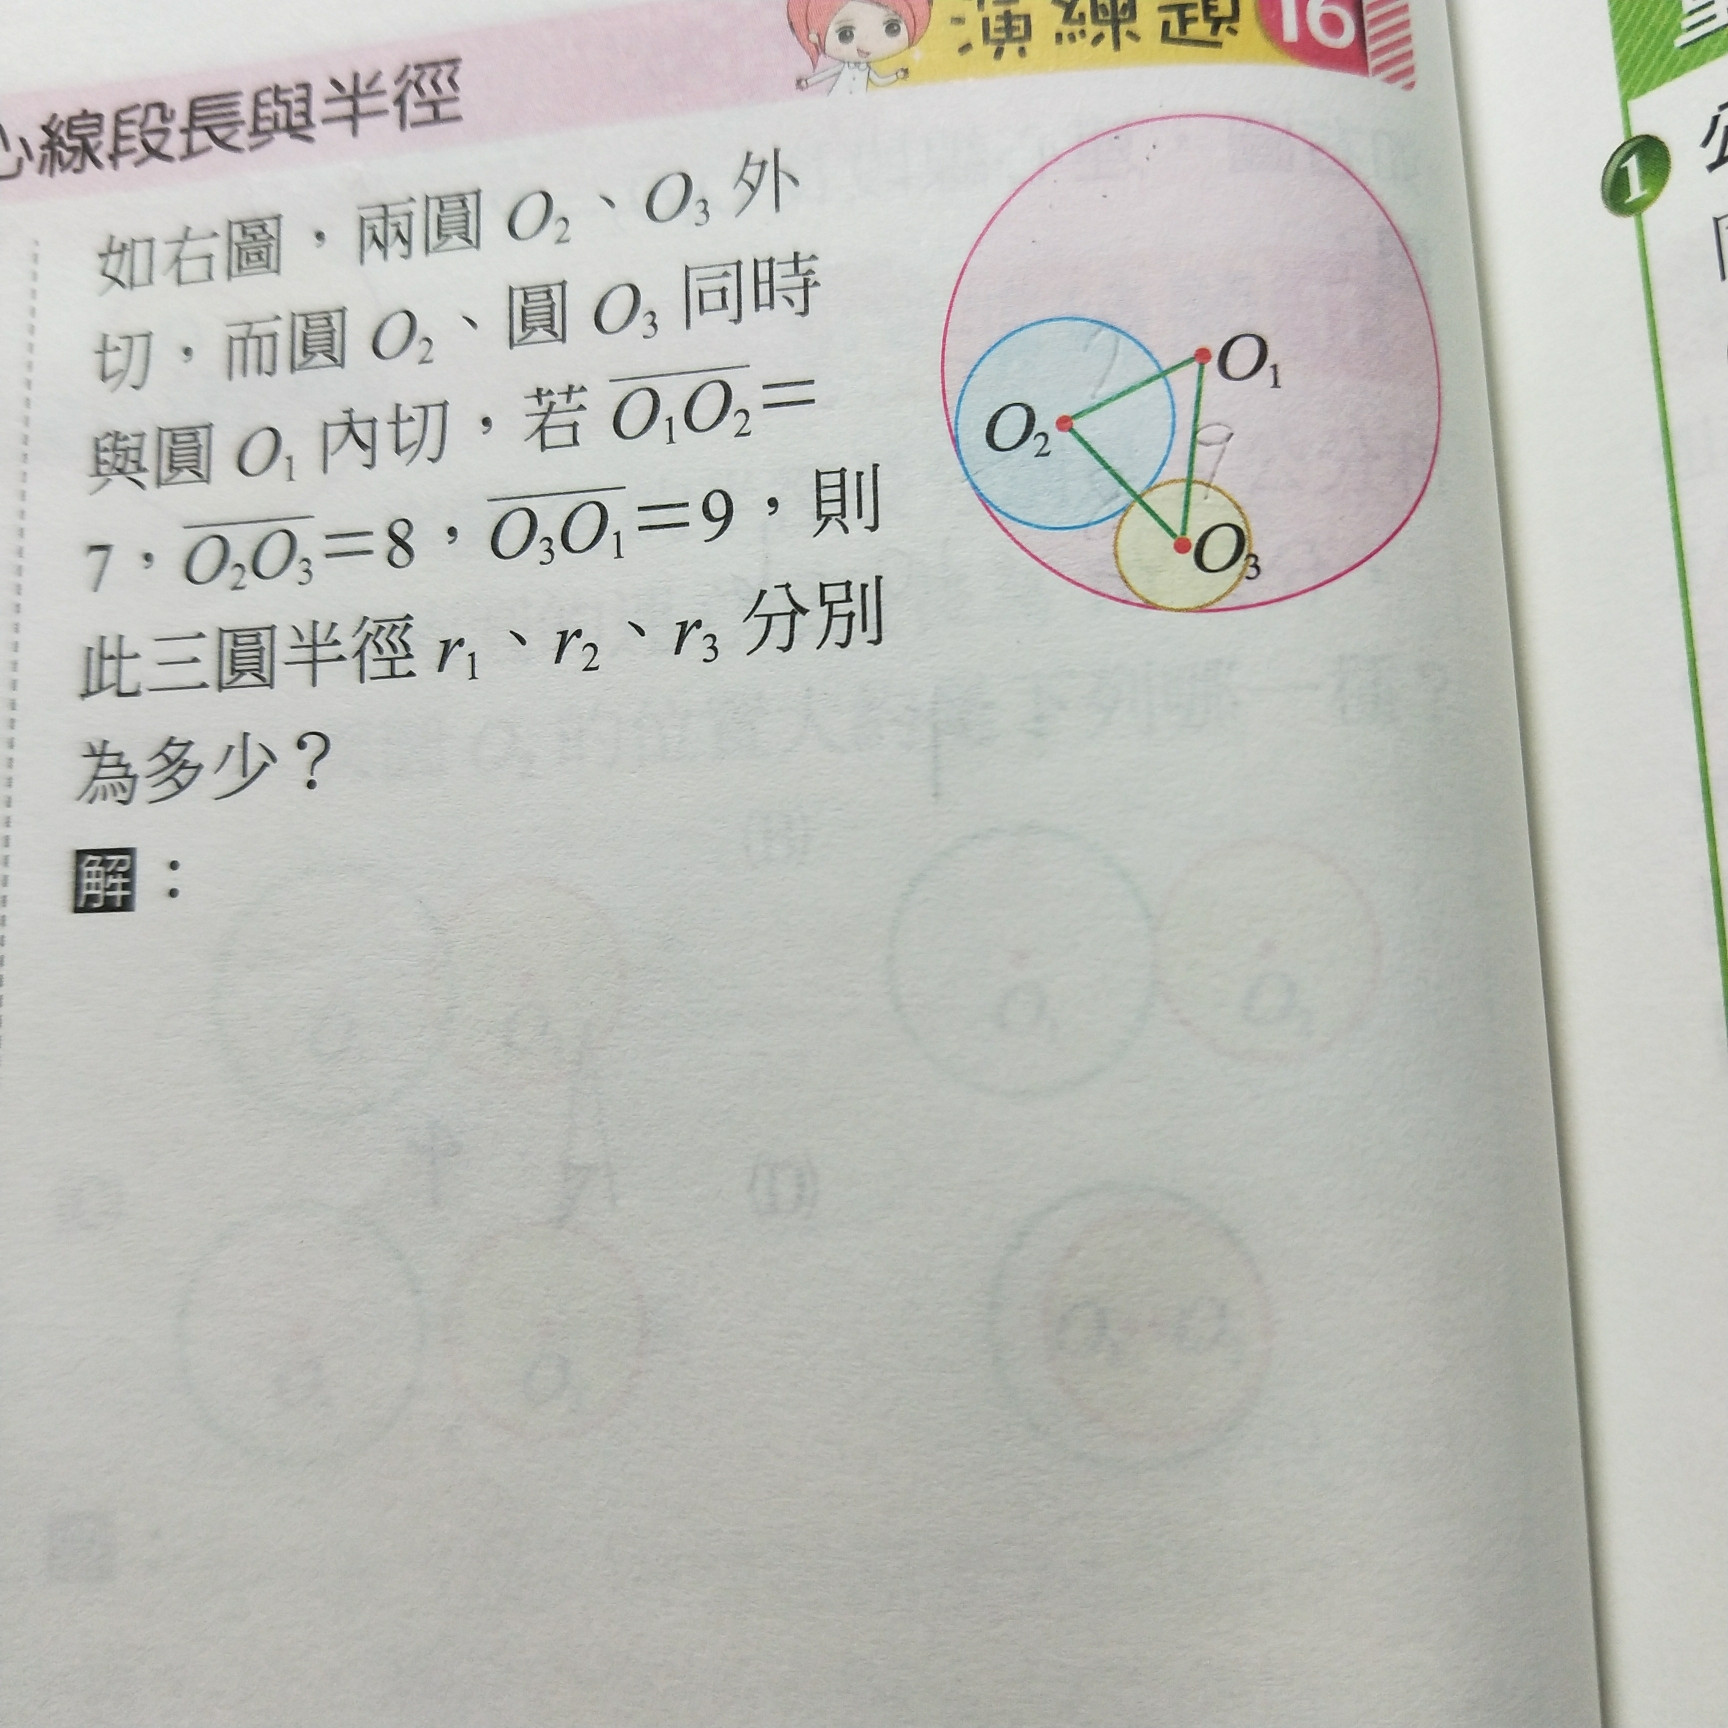 演練題 16
心線段長與半徑
如右圖，兩圓 O₂、O₃ 外
切，而圓 O₂、圓 O₃ 同時
與圓 O₁ 內切，若 O₁O₂＝
7，O₂O₃＝8，O₃O₁＝9，則
此三圓半徑 r₁、r₂、r₃ 分別
為多少？
解：
O₁
O₂
9
O₃
7
1